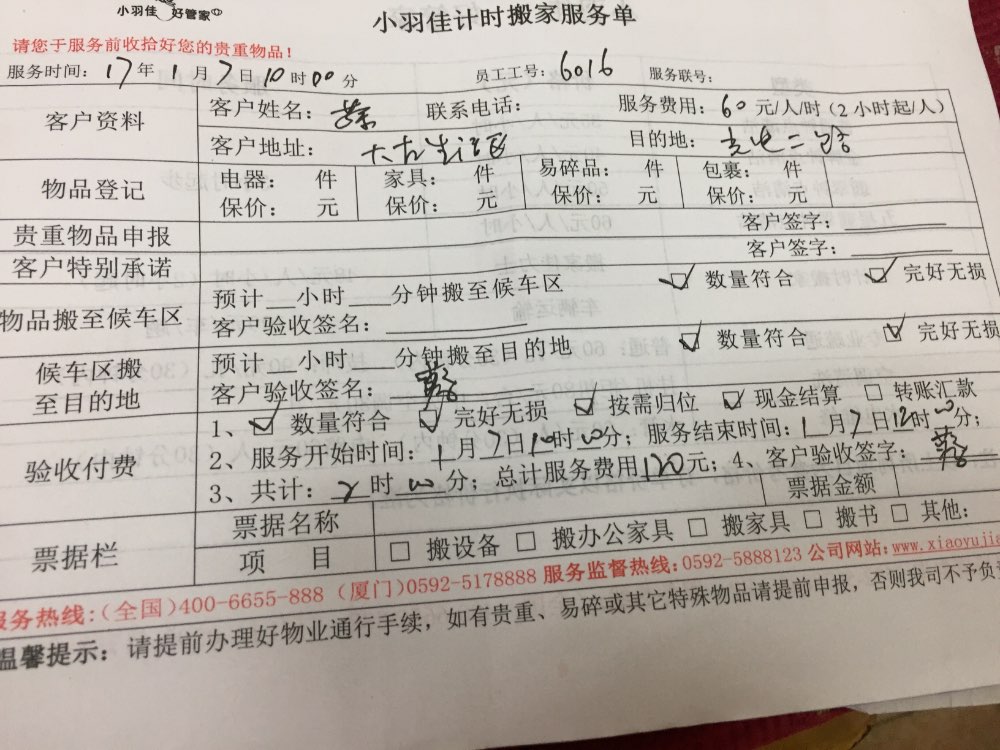 小羽佳 好管家
小羽佳计时搬家服务单
请您于服务前收拾好您的贵重物品！
服务时间：17年1月7日10时00分 员工工号：6016 服务联号：
客户资料 客户姓名： 联系电话： 服务费用：60元/人/时（2小时起/人）
客户地址： 目的地：
物品登记 电器： 件 家具： 件 易碎品： 件 包裹： 件
保价： 元 保价： 元 保价： 元 保价： 元
贵重物品申报 客户签字：
客户特别承诺 客户签字：
物品搬至候车区 预计 小时 分钟搬至候车区 ☑ 数量符合 ☑ 完好无损
客户验收签名：
候车区搬至目的地 预计 小时 分钟搬至目的地 ☑ 数量符合 ☑ 完好无损
客户验收签名：
验收付费 1、☑ 数量符合 ☑ 完好无损 ☑ 按需归位 ☑ 现金结算 □ 转账汇款
2、服务开始时间：1月7日10时00分；服务结束时间：1月7日12时00分；
3、共计：2时00分；总计服务费用120元；4、客户验收签字：
票据栏 票据名称 票据金额
项 目 □ 搬设备 □ 搬办公家具 □ 搬家具 □ 搬书 □ 其他：
服务热线：（全国）400-6655-888（厦门）0592-5178888 服务监督热线：0592-5888123 公司网站：www.xiaoyujia
温馨提示：请提前办理好物业通行手续，如有贵重、易碎或其它特殊物品请提前申报，否则我司不予负责